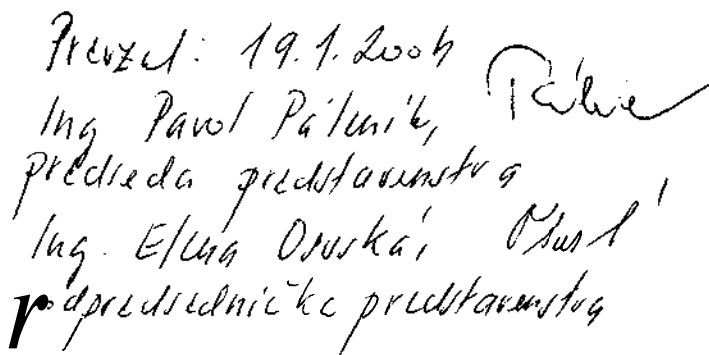 Prevzal: 19.1.2004
Ing Pavol Páleník,
predseda predstavenstva
Ing. Elena Osuská,
podpredsednička predstavenstva